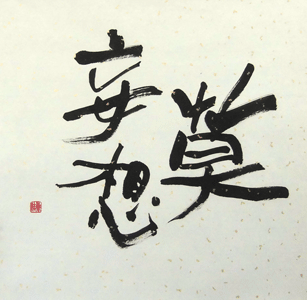 莫
妄想